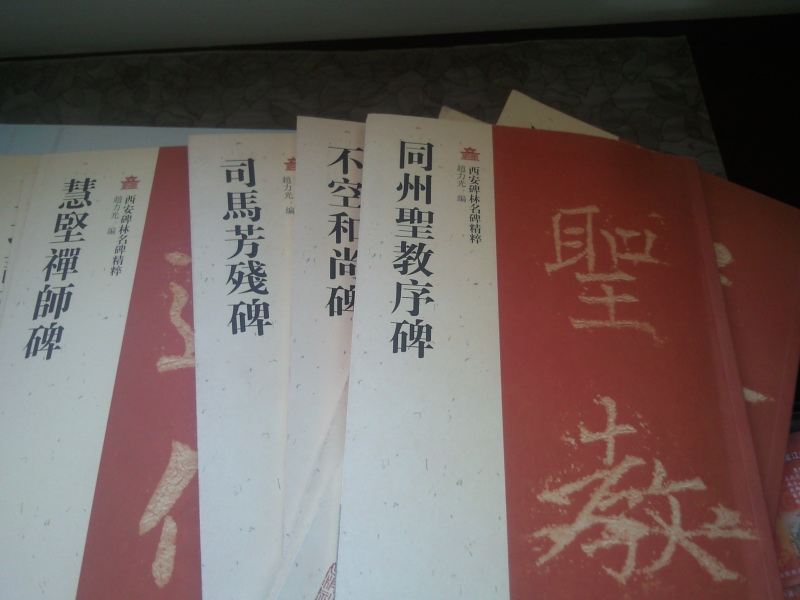 慧堅禪師碑
西安碑林名碑精粹
趙力光·編
司馬芳殘碑
趙力光·編
不空和尚碑
同州聖教序碑
西安碑林名碑精粹
趙力光·編
聖教